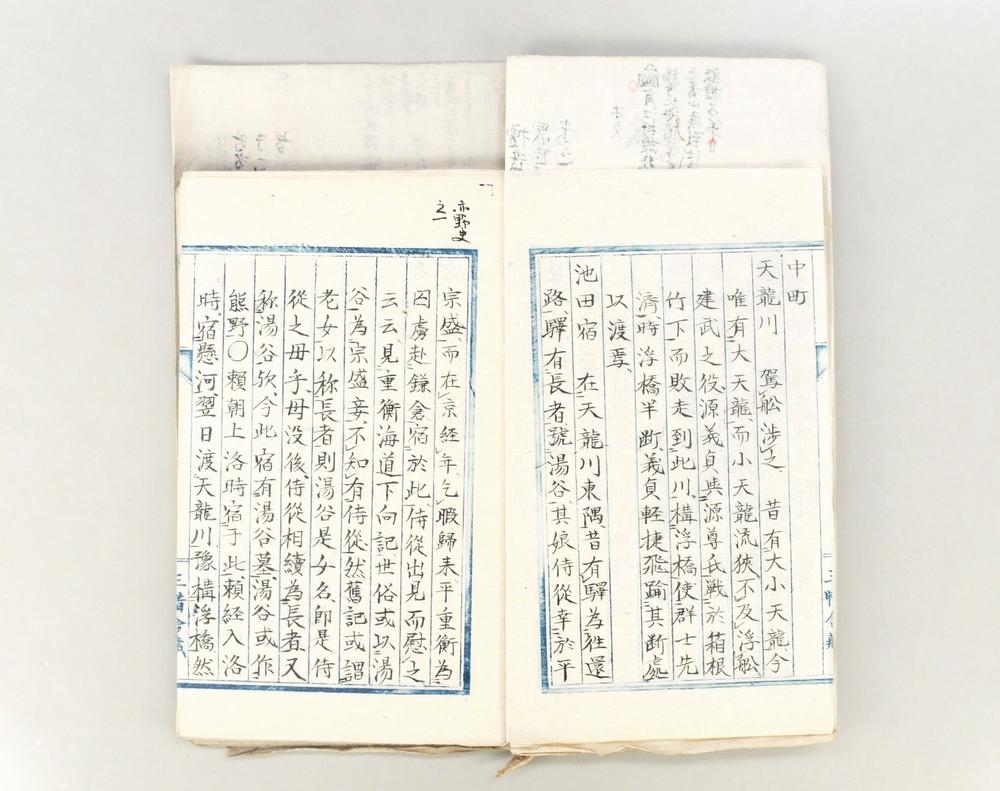 中町
天龍川 駕舩涉之 昔有大小天龍今
唯有大天龍而小天龍流狹不及浮舩
建武之役源義貞與源尊氏戰於箱根
竹下而敗走到此川構浮橋使群士先
濟時浮橋半斷義貞軽捷飛踰其断處
以渡焉
池田宿 在天龍川東隅昔有驛為徃還
路驛有長者號湯谷其娘侍從幸於平
亦野史
之一
宗盛而在京経年乞暇歸来平重衡為
囚虜赴鎌倉宿於此侍從出見而慰之
云云見重衡海道下向記世俗或以湯
谷為宗盛妾不知有侍從然舊記或謂
老女以称長者則湯谷是女名即是侍
從之母乎母没後侍從相續為長者又
称湯谷欤今此宿有湯谷墓湯谷或作
熊野〇賴朝上洛時宿于此賴経入洛
時宿懸河翌日渡天龍川豫構浮橋然